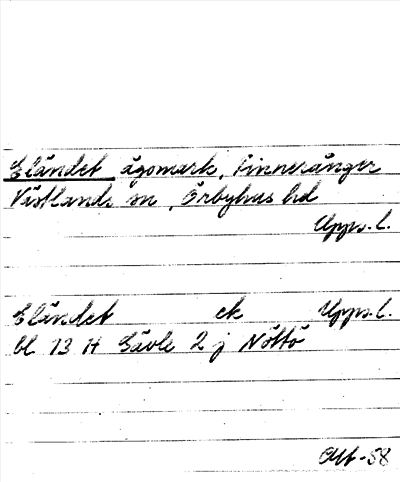 Eländet ägomark, Finneränger
Västlands sn, Örbyhus hd
Upps. l.
Eländet ek Upps. l.
bl 13 H Gävle 2 j Nöttö
-58